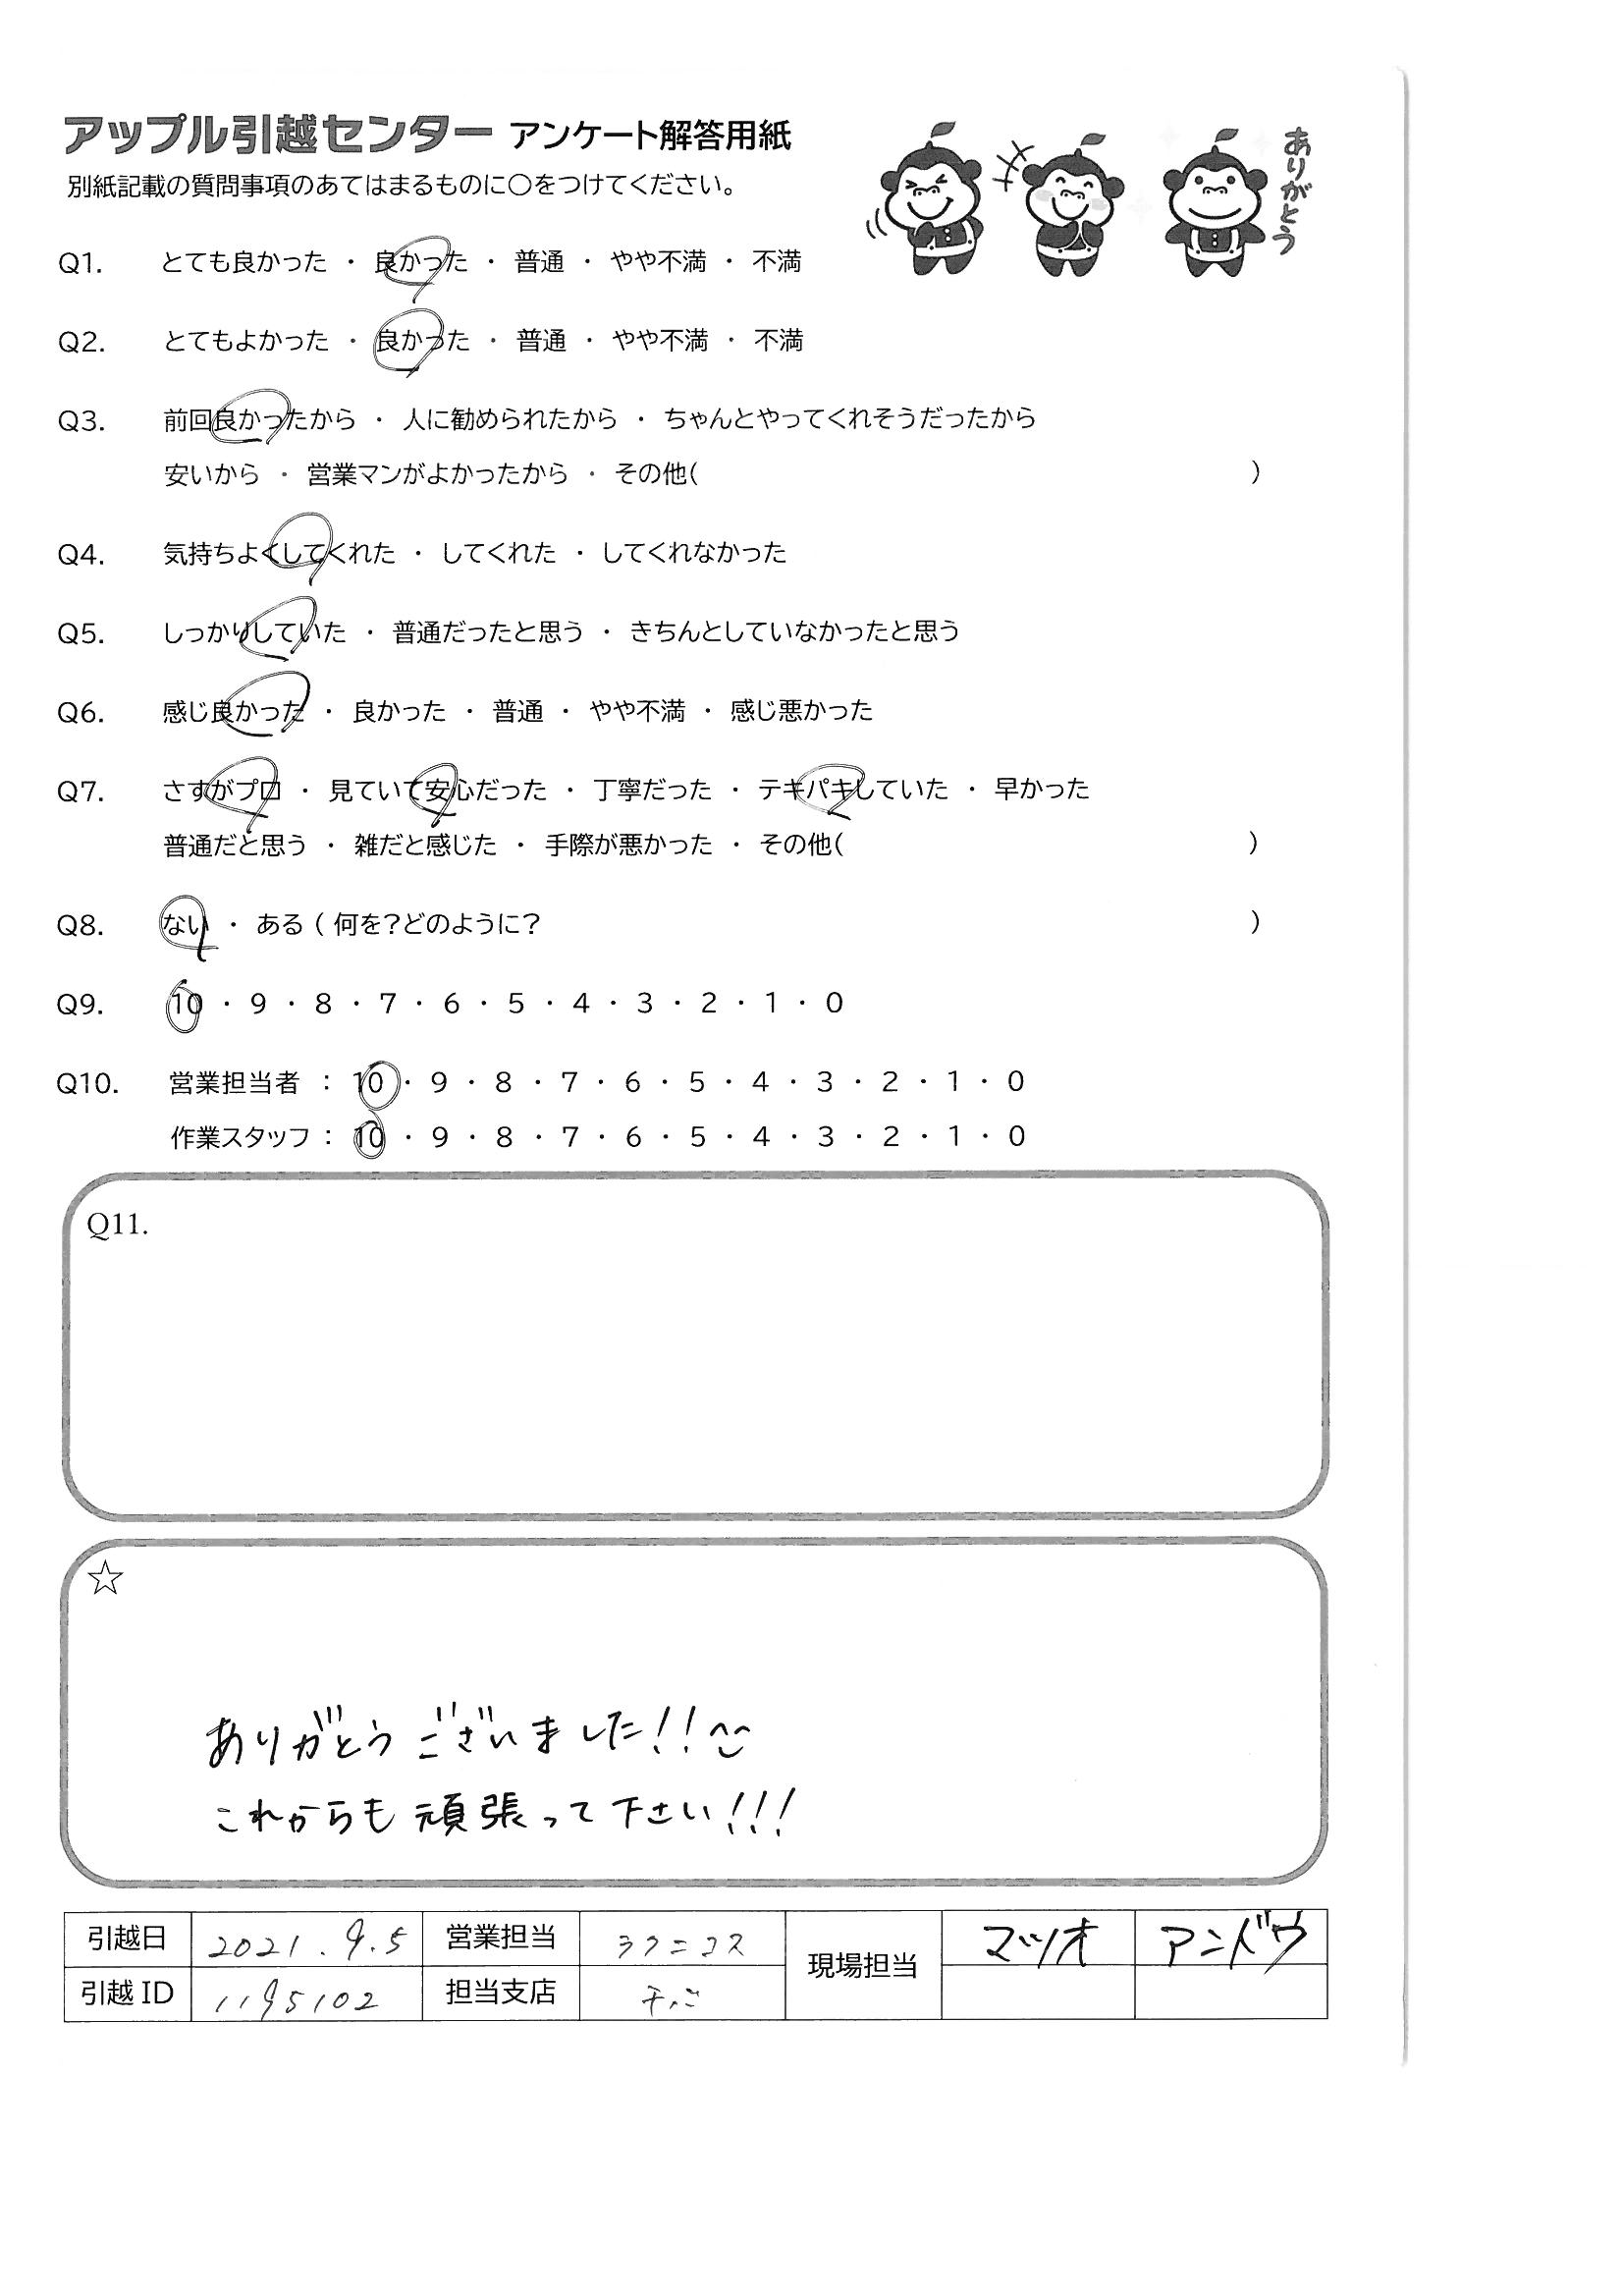 アップル引越センター アンケート解答用紙
ありがとう
別紙記載の質問事項のあてはまるものに○をつけてください。
Q1. とても良かった ・ 良かった ・ 普通 ・ やや不満 ・ 不満
Q2. とてもよかった ・ 良かった ・ 普通 ・ やや不満 ・ 不満
Q3. 前回良かったから ・ 人に勧められたから ・ ちゃんとやってくれそうだったから
安いから ・ 営業マンがよかったから ・ その他( )
Q4. 気持ちよくしてくれた ・ してくれた ・ してくれなかった
Q5. しっかりしていた ・ 普通だったと思う ・ きちんとしていなかったと思う
Q6. 感じ良かった ・ 良かった ・ 普通 ・ やや不満 ・ 感じ悪かった
Q7. さすがプロ ・ 見ていて安心だった ・ 丁寧だった ・ テキパキしていた ・ 早かった
普通だと思う ・ 雑だと感じた ・ 手際が悪かった ・ その他( )
Q8. ない ・ ある ( 何を?どのように? )
Q9. 10 ・ 9 ・ 8 ・ 7 ・ 6 ・ 5 ・ 4 ・ 3 ・ 2 ・ 1 ・ 0
Q10. 営業担当者 : 10 ・ 9 ・ 8 ・ 7 ・ 6 ・ 5 ・ 4 ・ 3 ・ 2 ・ 1 ・ 0
作業スタッフ : 10 ・ 9 ・ 8 ・ 7 ・ 6 ・ 5 ・ 4 ・ 3 ・ 2 ・ 1 ・ 0
Q11.
☆
ありがとうございました!!
これからも頑張って下さい!!!
引越日 2021.9.5 営業担当 現場担当 マツオ アンドウ
引越ID 1195102 担当支店